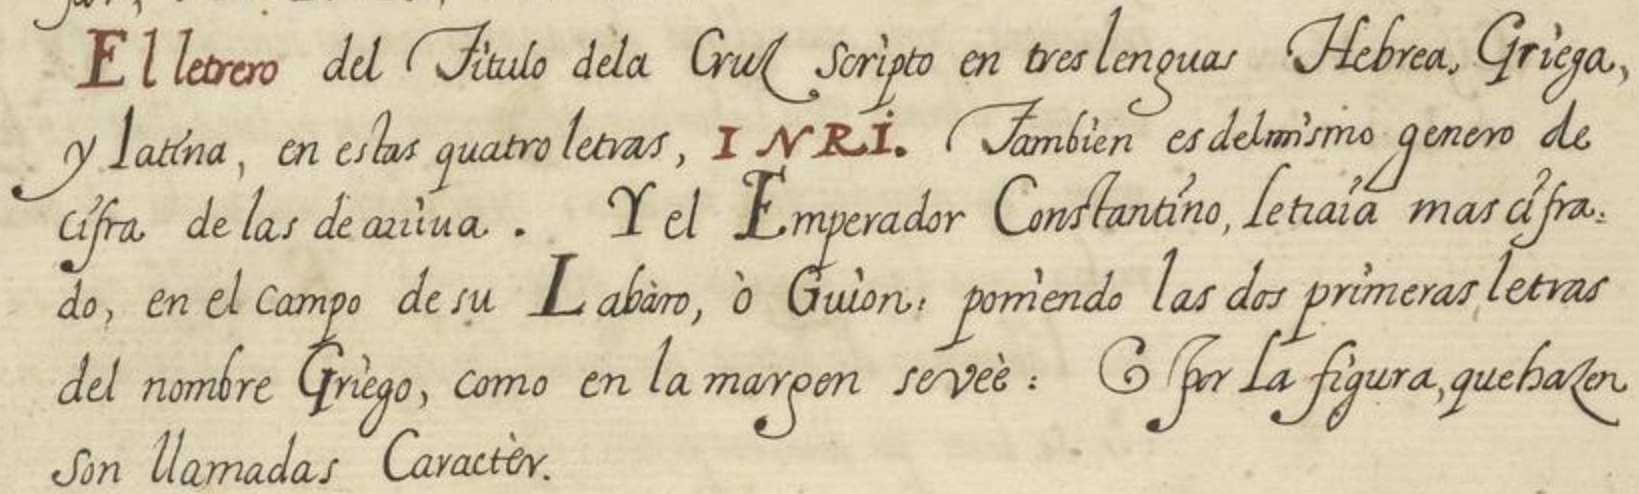 El letrero del Titulo dela Cruz scripto en tres lenguas Hebrea, Griega,
y latina, en estas quatro letras, INRI. Tambien es delmismo genero de
cifra de las de arriua. Y el Emperador Constantino, letraía mas cifra:
do, en el campo de su Labàro, ò Guion: poniendo las dos primeras letras
del nombre Griego, como en la margen se veè: G Por la figura, que hazen
son llamadas Caractèr.